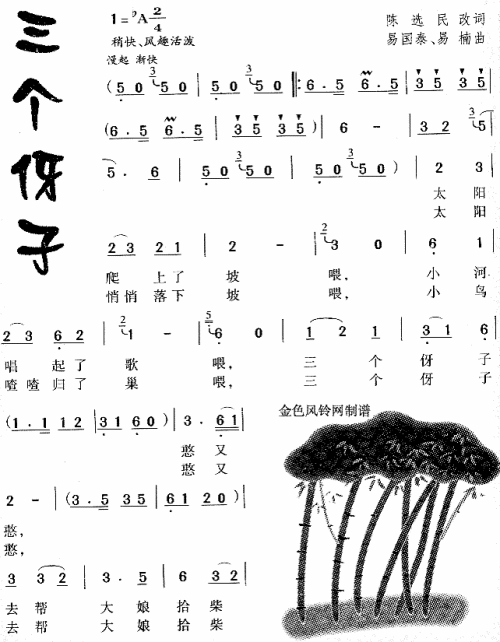 三个伢子
1=♭A 2/4
陈选民改词
稍快、风趣活泼
易国泰、易楠曲
慢起 渐快
(5 0 3 5 0 | 5 0 3 5 0 ‖: 6 . 5 6 . 5 | 3 5 3 5 |
(6 . 5 6 . 5 | 3 5 3 5 ) | 6 - | 3 2 3 5 |
5 . 6 | 5 0 3 5 0 | 5 0 3 5 0 ) | 2 3 |
太 阳
太 阳
2 3 2 1 | 2 - | 2 3 0 | 6 1 |
爬 上 了 坡 喂, 小 河
悄 悄 落 下 坡 喂, 小 鸟
2 3 6 2 | 2 1 - | 5 6 0 | 1 2 1 | 3 1 6 |
唱 起 了 歌 喂, 三 个 伢 子
喳 喳 归 了 巢 喂, 三 个 伢 子
(1 . 1 1 2 | 3 1 6 0 ) | 3 . 6 1 |
金色风铃网制谱
憨 又
憨 又
2 - | (3 . 5 3 5 | 6 1 2 0 ) |
憨,
憨,
3 3 2 | 3 . 5 | 6 3 2 |
去 帮 大 娘 拾 柴
去 帮 大 娘 拾 柴